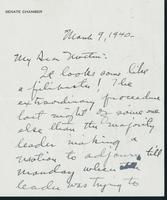 SENATE CHAMBER
March 9, 1940.
My Dear
It looks some like
a filibuster! The
extraordinary procedure
last night of some one
else than the majority
leader making a
motion to adjourn till
Monday when the
leader was trying to